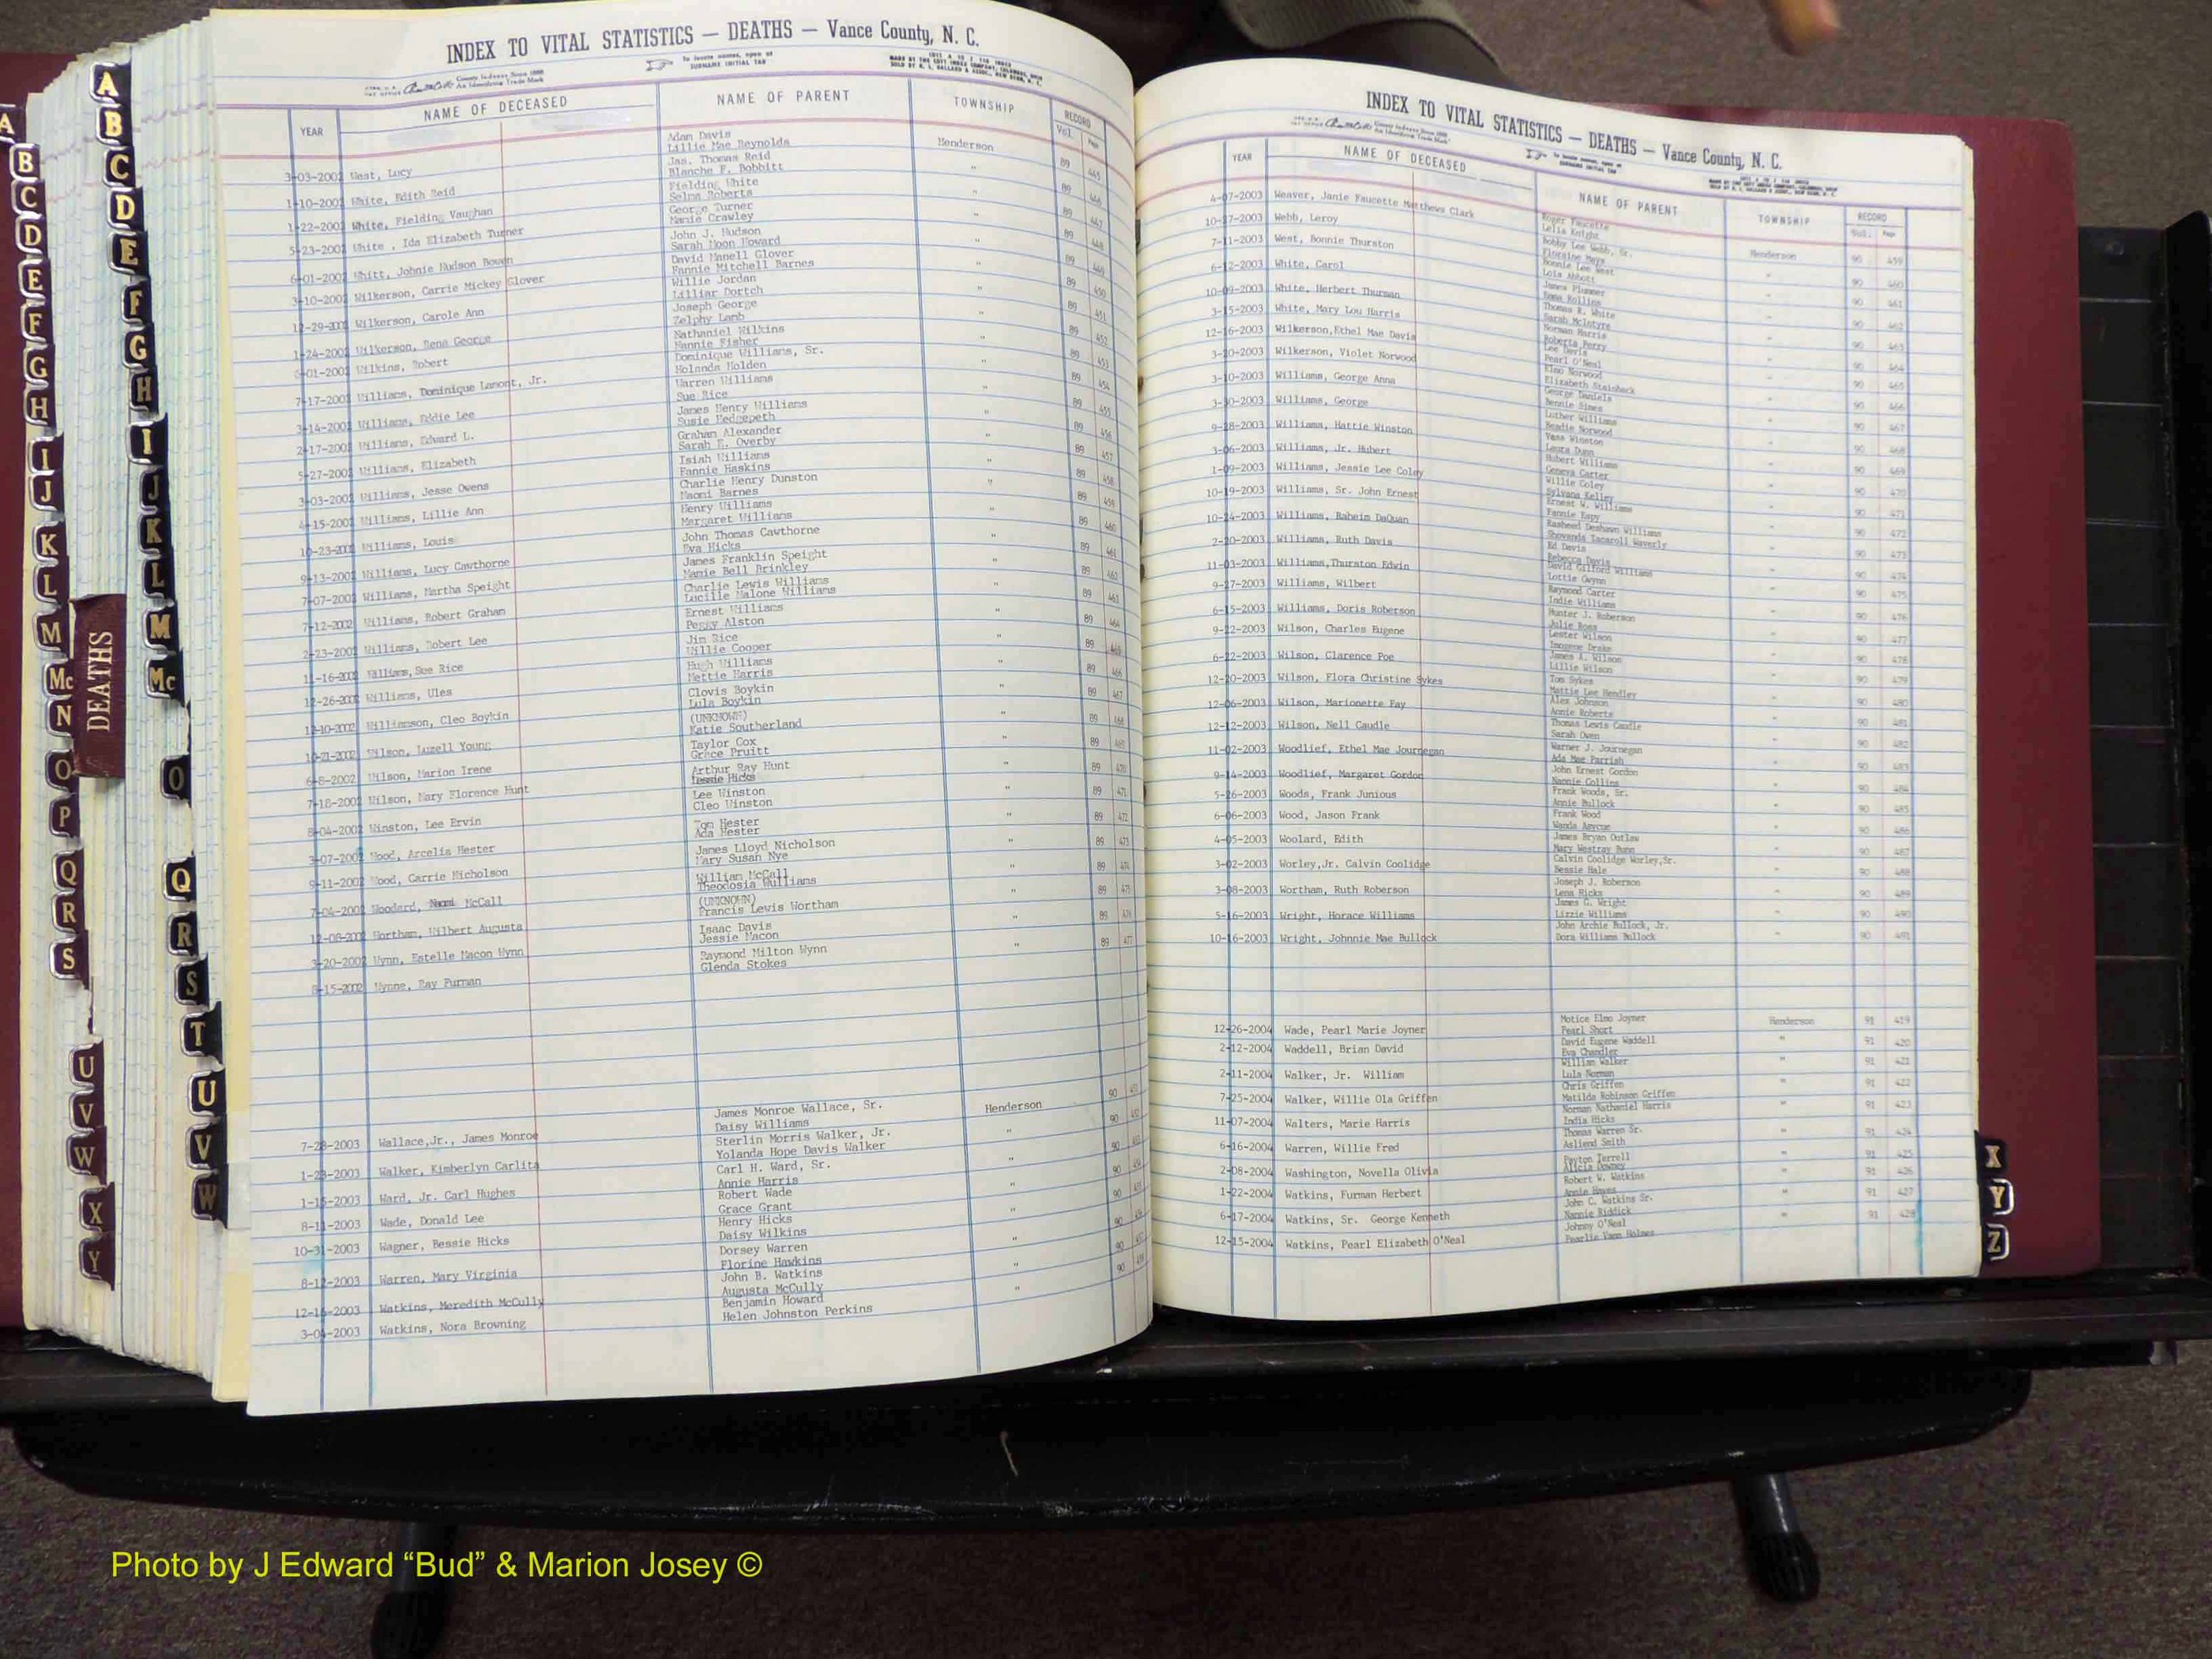 INDEX TO VITAL STATISTICS — DEATHS — Vance County, N. C.
To locate names, open at
SURNAME INITIAL TAB
County Indexes Since 1888
An Identifying Trade Mark
YEAR NAME OF DECEASED NAME OF PARENT TOWNSHIP RECORD
Vol. Page
Adam Davis
3-03-2002 West, Lucy Lillie Mae Reynolds Henderson 89 445
Jas. Thomas Reid
1-10-2002 White, Edith Reid Blanche F. Bobbitt " 89 446
Fielding White
1-22-2002 White, Fielding Vaughan Selma Roberts " 89 447
George Turner
5-23-2002 White , Ida Elizabeth Turner Mamie Crawley " 89 448
John J. Hudson
6-01-2002 Whitt, Johnie Hudson Bowen Sarah Moon Howard " 89 449
David Manell Glover
3-10-2002 Wilkerson, Carrie Mickey Glover Fannie Mitchell Barnes " 89 450
Willie Jordan
12-29-2002 Wilkerson, Carole Ann Lilliar Dortch " 89 451
Joseph George
1-24-2002 Wilkerson, Rena George Zelphy Lamb " 89 452
Nathaniel Wilkins
-01-2002 Wilkins, Robert Nannie Fisher " 89 453
Dominique Williams, Sr.
7-17-2002 Williams, Dominique Lamont, Jr. Holanda Holden " 89 454
Warren Williams
3-14-2002 Williams, Eddie Lee Sue Rice " 89 455
James Henry Williams
2-17-2002 Williams, Edward L. Susie Hedgepeth " 89 456
Graham Alexander
5-27-2002 Williams, Elizabeth Sarah E. Overby " 89 457
Isiah Williams
3-03-2002 Williams, Jesse Owens Fannie Haskins " 89 458
Charlie Henry Dunston
4-15-2002 Williams, Lillie Ann Naomi Barnes " 89 459
Henry Williams
10-23-2002 Williams, Louis Margaret Williams " 89 460
John Thomas Cawthorne
9-13-2002 Williams, Lucy Cawthorne Eva Hicks " 89 461
James Franklin Speight
7-07-2002 Williams, Martha Speight Mamie Bell Brinkley " 89 462
Charlie Lewis Williams
7-12-2002 Williams, Robert Graham Lucille Malone Williams " 89 463
Ernest Williams
2-23-2002 Williams, Robert Lee Peggy Alston " 89 464
Jim Rice
11-16-2002 Williams, Sue Rice Willie Cooper " 89 465
Hugh Williams
12-26-2002 Williams, Ules Nettie Harris " 89 466
Clovis Boykin
12-10-2002 Williamson, Cleo Boykin Lula Boykin " 89 467
(UNKNOWN)
10-21-2002 Wilson, Luzell Young Katie Southerland " 89 468
Taylor Cox
6-8-2002 Wilson, Marion Irene Grace Pruitt " 89 469
Arthur Ray Hunt
7-18-2002 Wilson, Mary Florence Hunt Hicks " 89 470
Lee Winston
8-04-2002 Winston, Lee Ervin Cleo Winston " 89 471
Tom Hester
3-07-2002 Wood, Arcelia Hester Ada Hester " 89 472
James Lloyd Nicholson
9-11-2002 Wood, Carrie Nicholson Mary Susan Nye " 89 473
William McCall
7-04-2002 Woodard, Naomi McCall Theodosia Williams " 89 474
(UNKNOWN)
12-08-2002 Wortham, Wilbert Augusta Francis Lewis Wortham " 89 475
Isaac Davis
3-20-2002 Wynn, Estelle Macon Wynn Jessie Macon " 89 476
Raymond Milton Wynn
8-15-2002 Wynne, Ray Furman Glenda Stokes " 89 477
James Monroe Wallace, Sr.
7-28-2003 Wallace,Jr., James Monroe Daisy Williams Henderson 90 451
Sterlin Morris Walker, Jr.
1-23-2003 Walker, Kimberlyn Carlita Yolanda Hope Davis Walker " 90 452
Carl H. Ward, Sr.
1-15-2003 Ward, Jr. Carl Hughes Annie Harris " 90 453
Robert Wade
8-11-2003 Wade, Donald Lee Grace Grant " 90 454
Henry Hicks
10-31-2003 Wagner, Bessie Hicks Daisy Wilkins " 90 455
Dorsey Warren
8-12-2003 Warren, Mary Virginia Florine Hawkins " 90 456
John B. Watkins
12-16-2003 Watkins, Meredith McCully Augusta McCully " 90 457
Benjamin Howard
3-04-2003 Watkins, Nora Browning Helen Johnston Perkins " 90 458
INDEX TO VITAL STATISTICS — DEATHS — Vance County, N. C.
YEAR NAME OF DECEASED NAME OF PARENT TOWNSHIP RECORD
Vol. Page
Roger Faucette
4-07-2003 Weaver, Janie Faucette Matthews Clark Lelia Knight Henderson 90 459
Bobby Lee Webb, Sr.
10-27-2003 Webb, Leroy Floraine Hays " 90 460
Bonnie Lee West
7-11-2003 West, Bonnie Thurston Lois Abbott " 90 461
James Plummer
6-12-2003 White, Carol Emma Rollins " 90 462
Thomas R. White
10-09-2003 White, Herbert Thurman Sarah McIntyre " 90 463
Norman Harris
3-15-2003 White, Mary Lou Harris Roberta Perry " 90 464
Lee Davis
12-16-2003 Wilkerson,Ethel Mae Davis Pearl O'Neal " 90 465
Elmo Norwood
3-20-2003 Wilkerson, Violet Norwood Elizabeth Stainback " 90 466
George Daniels
3-10-2003 Williams, George Anna Bennie Simes " 90 467
Luther Williams
3-30-2003 Williams, George Beadie Norwood " 90 468
Vass Winston
9-28-2003 Williams, Hattie Winston Laura Dunn " 90 469
Hubert Williams
3-06-2003 Williams, Jr. Hubert Geneva Carter " 90 470
Willie Coley
1-09-2003 Williams, Jessie Lee Coley Sylvana Kelley " 90 471
Ernest W. Williams
10-19-2003 Williams, Sr. John Ernest Fannie Espy " 90 472
Rasheed Deshawn Williams
10-24-2003 Williams, Raheim DaQuan Shovanda Tacaroll Waverly " 90 473
Ed Davis
2-20-2003 Williams, Ruth Davis Rebecca Davis " 90 474
David Gilford Williams
11-03-2003 Williams,Thurston Edwin Lottie Gwynn " 90 475
Raymond Carter
9-27-2003 Williams, Wilbert Indie Williams " 90 476
Hunter J. Roberson
6-15-2003 Williams, Doris Roberson Julie Ross " 90 477
Lester Wilson
9-22-2003 Wilson, Charles Eugene Imogene Drake " 90 478
James A. Wilson
6-22-2003 Wilson, Clarence Poe Lillie Wilson " 90 479
Tom Sykes
12-20-2003 Wilson, Flora Christine Sykes Mattie Lee Hendley " 90 480
Alex Johnson
12-06-2003 Wilson, Marionette Fay Annie Roberts " 90 481
Thomas Lewis Caudle
12-12-2003 Wilson, Nell Caudle Sarah Owen " 90 482
Warner J. Journegan
11-02-2003 Woodlief, Ethel Mae Journegan Ada Mae Parrish " 90 483
John Ernest Gordon
9-14-2003 Woodlief, Margaret Gordon Nannie Collins " 90 484
Frank Woods, Sr.
5-26-2003 Woods, Frank Junious Annie Bullock " 90 485
Frank Wood
6-06-2003 Wood, Jason Frank Wanda Ayscue " 90 486
James Bryan Outlaw
4-05-2003 Woolard, Edith Mary Westray Bunn " 90 487
Calvin Coolidge Worley,Sr.
3-02-2003 Worley,Jr. Calvin Coolidge Bessie Hale " 90 488
Joseph J. Roberson
3-08-2003 Wortham, Ruth Roberson Lena Hicks " 90 489
James G. Wright
5-16-2003 Wright, Horace Williams Lizzie Williams " 90 490
John Archie Bullock, Jr.
10-16-2003 Wright, Johnnie Mae Bullock Dora Williams Bullock " 90 491
Motice Elmo Joyner
12-26-2004 Wade, Pearl Marie Joyner Pearl Short Henderson 91 419
David Eugene Waddell
2-12-2004 Waddell, Brian David Eva Chandler " 91 420
William Walker
2-11-2004 Walker, Jr. William Lula Norman " 91 421
Chris Griffen
7-25-2004 Walker, Willie Ola Griffen Matilda Robinson Griffen " 91 422
Norman Nathaniel Harris
11-07-2004 Walters, Marie Harris India Hicks " 91 423
Thomas Warren Sr.
6-16-2004 Warren, Willie Fred Asliend Smith " 91 424
Payton Terrell
2-08-2004 Washington, Novella Olivia Alicia Downey " 91 425
Robert W. Watkins
1-22-2004 Watkins, Furman Herbert Annie Hayes " 91 426
John C. Watkins Sr.
6-17-2004 Watkins, Sr. George Kenneth Nannie Riddick " 91 427
Johnny O'Neal
12-15-2004 Watkins, Pearl Elizabeth O'Neal Pearlie Vann Holmes " 91 428
A
B
C
D
E
F
G
H
I
J
K
L
M
Mc
N
O
P
Q
R
S
U
V
W
X
Y
DEATHS
A
B
C
D
E
F
G
H
I
J
K
L
M
Mc
O
Q
R
S
T
U
V
W
X
Y
Z
Photo by J Edward “Bud” & Marion Josey ©